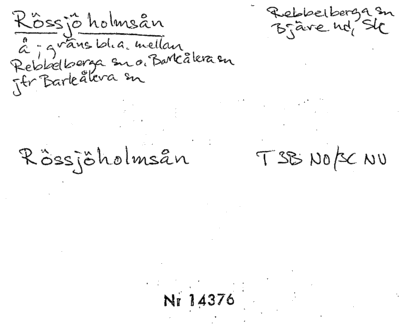 Rössjöholmsån
Rebbelberga sn
Bjäre hd, Sk
å; gräns bl.a. mellan
Rebbelberga sn o. Barkåkra sn
jfr Barkåkra sn
Rössjöholmsån T 3B NO/3C NV
Nr 14376